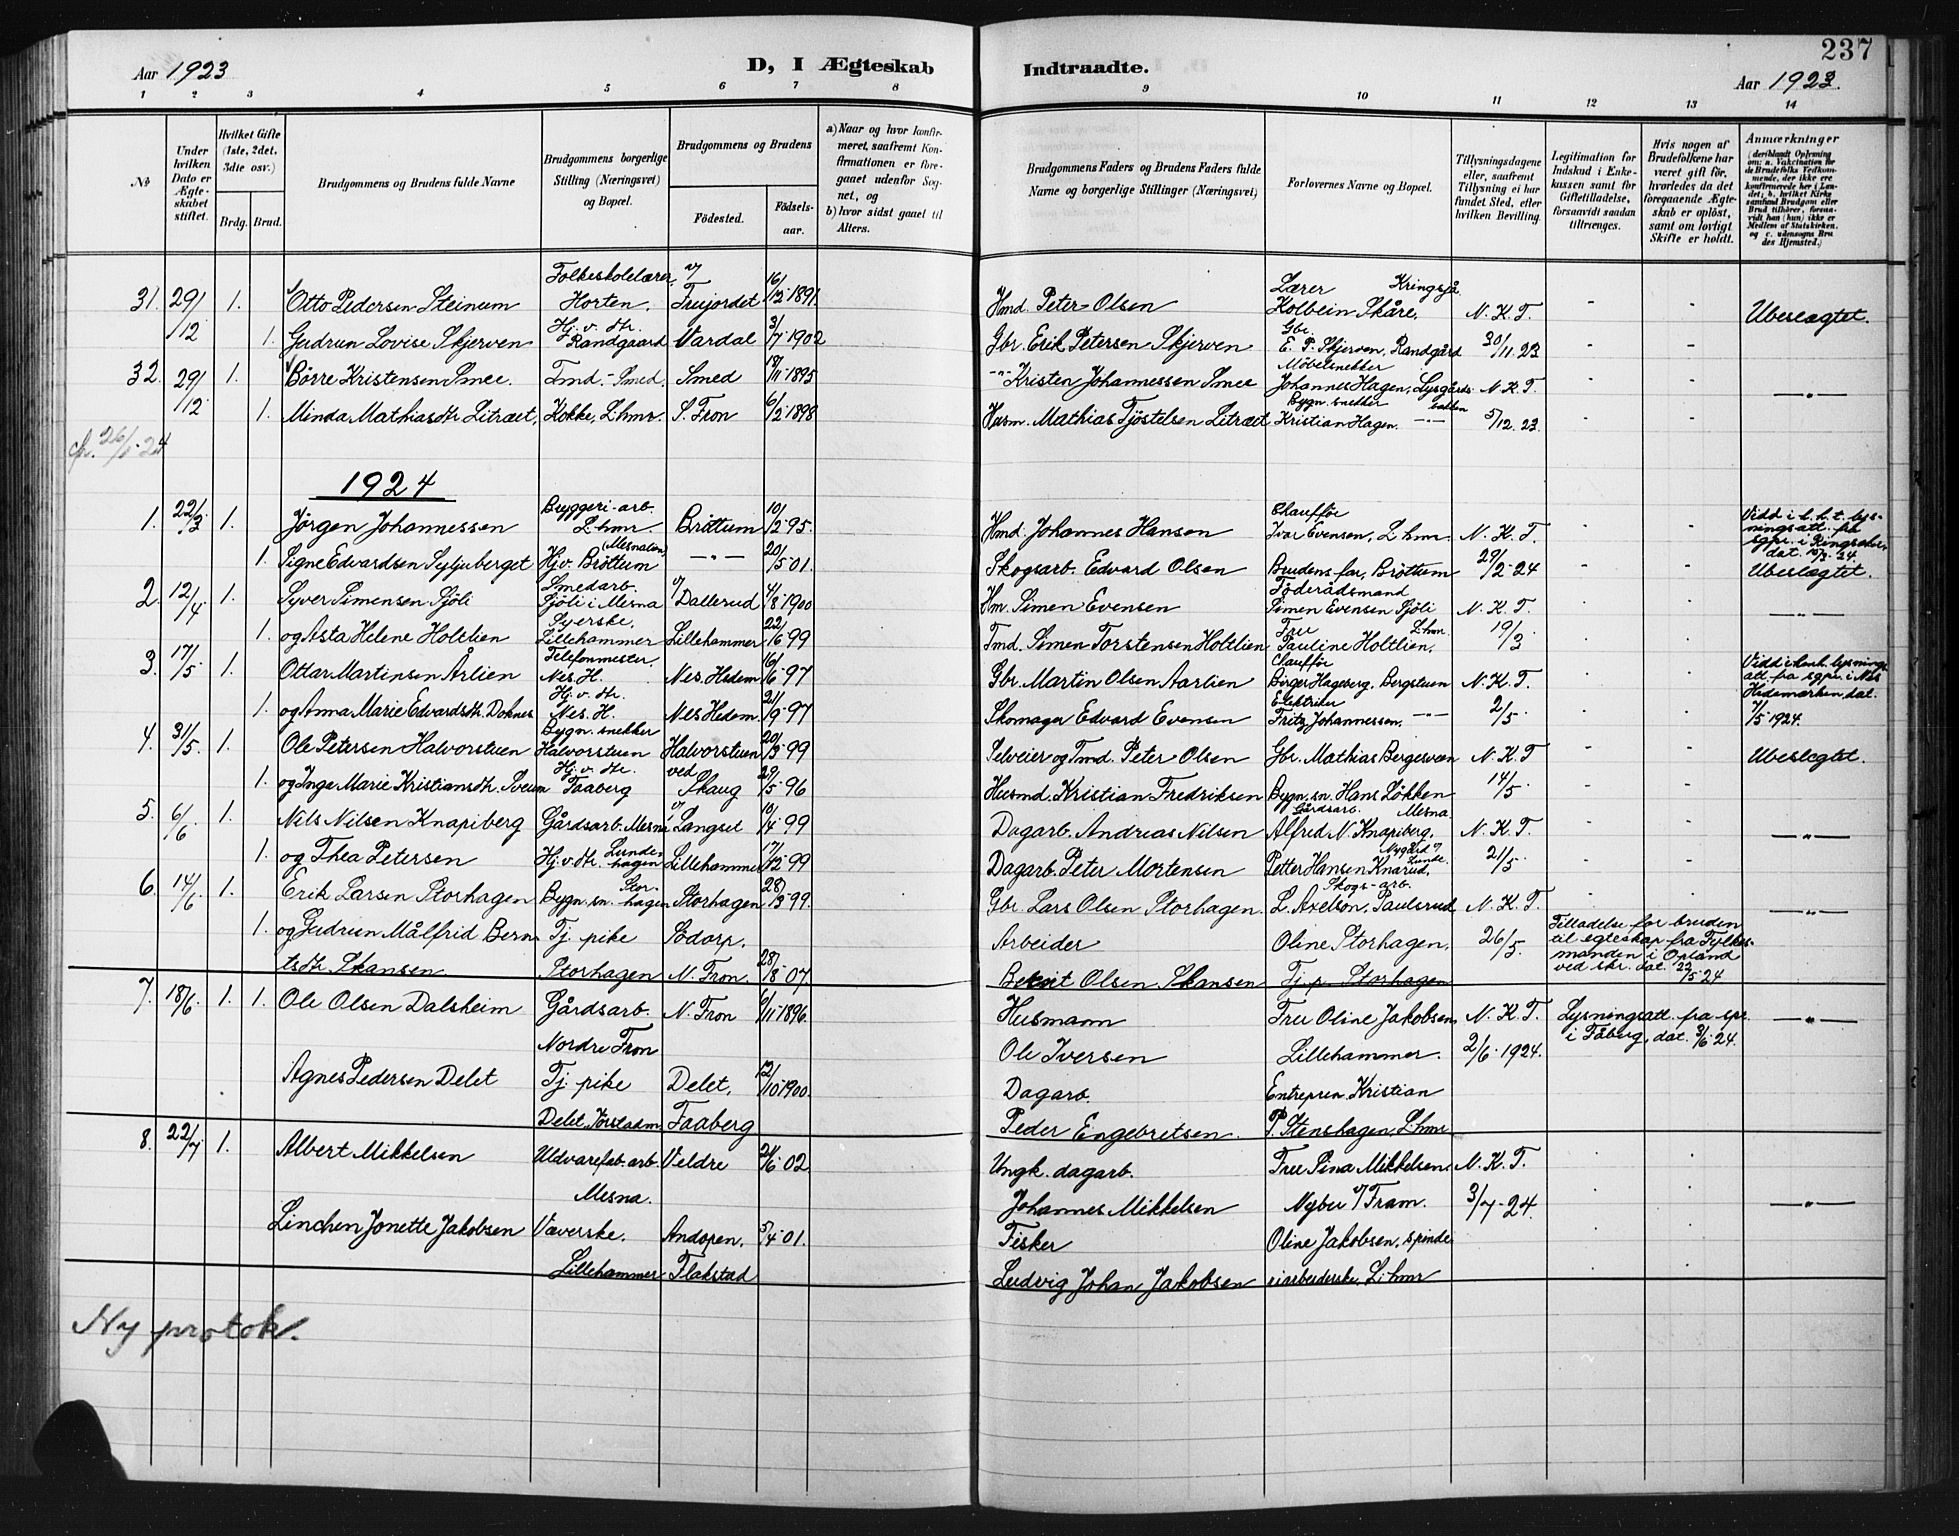 237
Aar 1923
D, I Ægteskab Indtraadte.
Aar 1923.
1 2 3 4 5 6 7 8 9 10 11 12 13 14
No
Under hvilken Dato er Ægteskabet stiftet.
Hvilket Gifte (1ste, 2det, 3die osv.)
Brdg. Brud.
Brudgommens og Brudens fulde Navne
Brudgommens borgerlige Stilling (Næringsvei) og Bopæl.
Brudgommens og Brudens
Födested. Födselsaar.
a) Naar og hvor konfirmeret, saafremt Konfirmationen er foregaaet udenfor Sognet, og
b) hvor sidst gaaet til Alters.
Brudgommens Faders og Brudens Faders fulde Navne og borgerlige Stillinger (Næringsvei)
Forlovernes Navne og Bopæl.
Tillysningsdagene eller, saafremt Tillysning ei har fundet Sted, efter hvilken Bevilling.
Legitimation for Indskud i Enkekassen samt for Giftetilladelse, forsaavidt saadan tiltrænges.
Hvis nogen af Brudefolkene har været gift för, hvorledes da det foregaaende Ægteskab er oplöst, samt om lovligt Skifte er holdt.
Anmærkninger
(deriblandt Oplysning om: a. Vakcination for de Brudefolks Vedkommende, der ikke ere konfirmerede her i Landet; b. hvilket Kirkesamfund Brudgom eller Brud tilhörer, forsaavidt han (hun) ikke er Medlem af Statskirken, og c. udensogns Brudes Hjemsted.)
31. 29/12 1. Otto Pedersen Steinum Folkeskolelærer, Horten. v/ Trujordet 16/12 1891 Hmd. Peter Olsen Lærer Kolbein Skåre, Kringsjå N. K. T. Ubeslægtet.
1. Gudrun Lovise Skjerven Hj. v. dtr. Randgaard Vardal 3/7 1902 Gbr. Erik Petersen Skjerven Gbr. E. P. Skjerven, Randgård 30/11 23
32. 29/12 1. Börre Kristensen Smee. Tmd.-Smed, Smed 18/11 1895 -"- Kristen Johannessen Smee Möbelsnekker Johannes Hagen, Lysgårdsbakken N. K. T. -"-
1. Minda Mathiasdtr Litræt, Kokke, L.hmr. S. Fron 6/2 1898 Husm. Mathias Tjöstelsen Litræt Bygn. snekker Kristian Hagen. -"- 5/12 23.
26/1-24
1924
1. 22/3 1. Jörgen Johannessen Bryggeri-arb. L.hmr Bröttum 10/12 95. Hmd. Johannes Hansen Chauffør Ivar Evensen, L.hmr. N. K. T. Vidd i h.h.t. lysningsatt. fra sgpr. i Ringsaker, dat. 10/3 24
1. Signe Edvardsen Syljuberget (Mesnalien) Hj. v. Bröttum -"- 20/5 01. Skogsarb. Edvard Olsen Brudens far, Bröttum 29/2-24 Ubeslægtet.
2. 12/4 1. Syver Simensen Sjöli Smedarb. Sjöli i Mesna v/ Dallerud 4/8 1900 Hm. Simen Evensen Föderådsmand Simen Evensen Sjöli N. K. T. -"-
1. og Asta Helene Holtlien Syerske, Lillehammer Lillehammer 22/6 99 Tmd. Simen Torstensen Holtlien Fru Pauline Holtlien, L.hmr. 19/3
3. 17/5 1. Ottar Martinsen Årlien Telefonmester. Nes H. Nes. Hedem. 16/6-97 Gbr. Martin Olsen Aarlien Chauffør Birger Hageberg, Bergstuen N. K. T. Vidd i henh. lysningsatt. fra sgpr. i Nes Hedemarken dat. 7/5 1924.
1. og Anna Marie Edvardsdtr. Dohnes Hj. v. dtr. Nes. H. Nes Hedem. 21/9-97 Skomager Edvard Evensen Elektriker Fritz Johannessen, -"- 2/5
4. 31/5. 1. Ole Petersen Halvorstuen Bygn. snekker Halvorstuen Halvorstuen 20/3 99 Selveier og Tmd. Peter Olsen Gbr. Mathias Bergesveen N. K. T Ubeslægtet.
1. og Inga Marie Kristiansdtr. Sveum Hj. v. dtr. Faaberg ved Skaug 29/5 96 Husmd. Kristian Fredriksen Bygn. sn. Hans Løkken 14/5
5. 6/6. 1. Nils Nilsen Knapiberg Gårdsarb. Mesna v/ Langset 10/4 99 Dagarb. Andreas Nilsen Gårdsarb. Alfred N. Knapiberg, Mesna N. K. T. -"-
1. og Thea Petersen Hj. v. dtr. Lundehagen Lillehammer 17/12 99 Dagarb. Peter Mortensen Petter Hansen Knarud, Nygård v/ Lunde. 21/5
6. 14/6 1. Erik Larsen Storhagen Bygn. sn. Storhagen Storhagen 28/3 99. Gbr Lars Olsen Storhagen. Skogs-arb. L. Axelson, Paulsrud N. K. T. -"-
1. og Gudrun Målfrid Berntsdtr. Skansen Tj. pike Storhagen Sødorp. N. Fron. 28/8-07. Arbeider Bernt Olsen Skansen Oline Storhagen. Tj. p. Storhagen 26/5. Tilladelse for bruden til egteskap fra Fylkesmanden i Opland ved skr. dat. 22/5 24
7. 18/6. 1. 1. Ole Olsen Dalsheim Gårdsarb. Nordre Fron N. Fron 6/11 1896. Husmann Ole Iversen Fru Oline Jakobsen, Lillehammer. N. K. T. 2/6-1924. Lysningsatt. fra spr. i Fåberg, dat. 3/6 24. -"-
Agnes Pedersen Delet Tj. pike Delet, Vorstadm. Delet, Faaberg 12/10 1900. Dagarb. Peder Engebretsen. Entrepren. Kristian P. Stenshagen, L.hmr.
8. 22/7. 1. Albert Mikkelsen Uldvarefab. arb. Mesna. Veldre 21/6 02. Ungk. dagarb. Johannes Mikkelsen Fru Pina Mikkelsen Nybu v/ Fram. N. K. T. 3/7-24. -"-
Linchen Jonette Jakobsen Væverske. Lillehammer Andopen. Flakstad 5/4 01. Fisker Ludvig Johan Jakobsen Oline Jakobsen, spinderiarbeiderske, L.hmr
Ny protok.